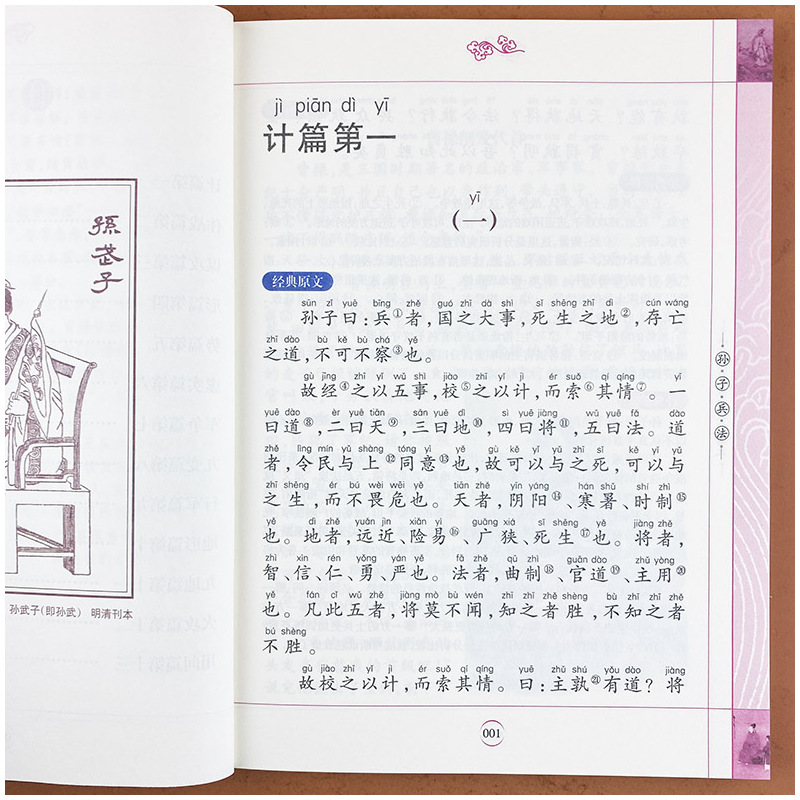 孫武子
孙武子(即孙武) 明清刊本
jì piān dì yī
计篇第一
yī
(一)
经典原文
sūn zǐ yuē bīng zhě guó zhī dà shì sǐ shēng zhī dì cún wáng
孙子曰:兵①者,国之大事,死生之地②,存亡
zhī dào bù kě bù chá yě
之道,不可不察③也。
gù jīng zhī yǐ wǔ shì jiào zhī yǐ jì ér suǒ qí qíng yī
故经④之以五事,校⑤之以计,而索⑥其情⑦。一
yuē dào èr yuē tiān sān yuē dì sì yuē jiàng wǔ yuē fǎ dào
曰道⑧,二曰天⑨,三曰地⑩,四曰将⑪,五曰法。道
zhě lìng mín yǔ shàng tóng yì yě gù kě yǐ yǔ zhī sǐ kě yǐ yǔ
者,令民与上⑫同意⑬也,故可以与之死,可以与
zhī shēng ér bú wèi wēi yě tiān zhě yīn yáng hán shǔ shí zhì
之生,而不畏危也。天者,阴阳⑭、寒暑、时制⑮
yě dì zhě yuǎn jìn xiǎn yì guǎng xiá sǐ shēng yě jiàng zhě
也。地者,远近、险易⑯、广狭、死生⑰也。将者,
zhì xìn rén yǒng yán yě fǎ zhě qū zhì guān dào zhǔ yòng
智、信、仁、勇、严也。法者,曲制⑱、官道⑲、主用⑳
yě fán cǐ wǔ zhě jiàng mò bù wén zhī zhī zhě shèng bù zhī zhī zhě
也。凡此五者,将莫不闻,知之者胜,不知之者
bú shèng
不胜。
gù jiào zhī yǐ jì ér suǒ qí qíng yuē zhǔ shú yǒu dào jiàng
故校之以计,而索其情。曰:主孰㉑有道?将
001
孙·子·兵·法